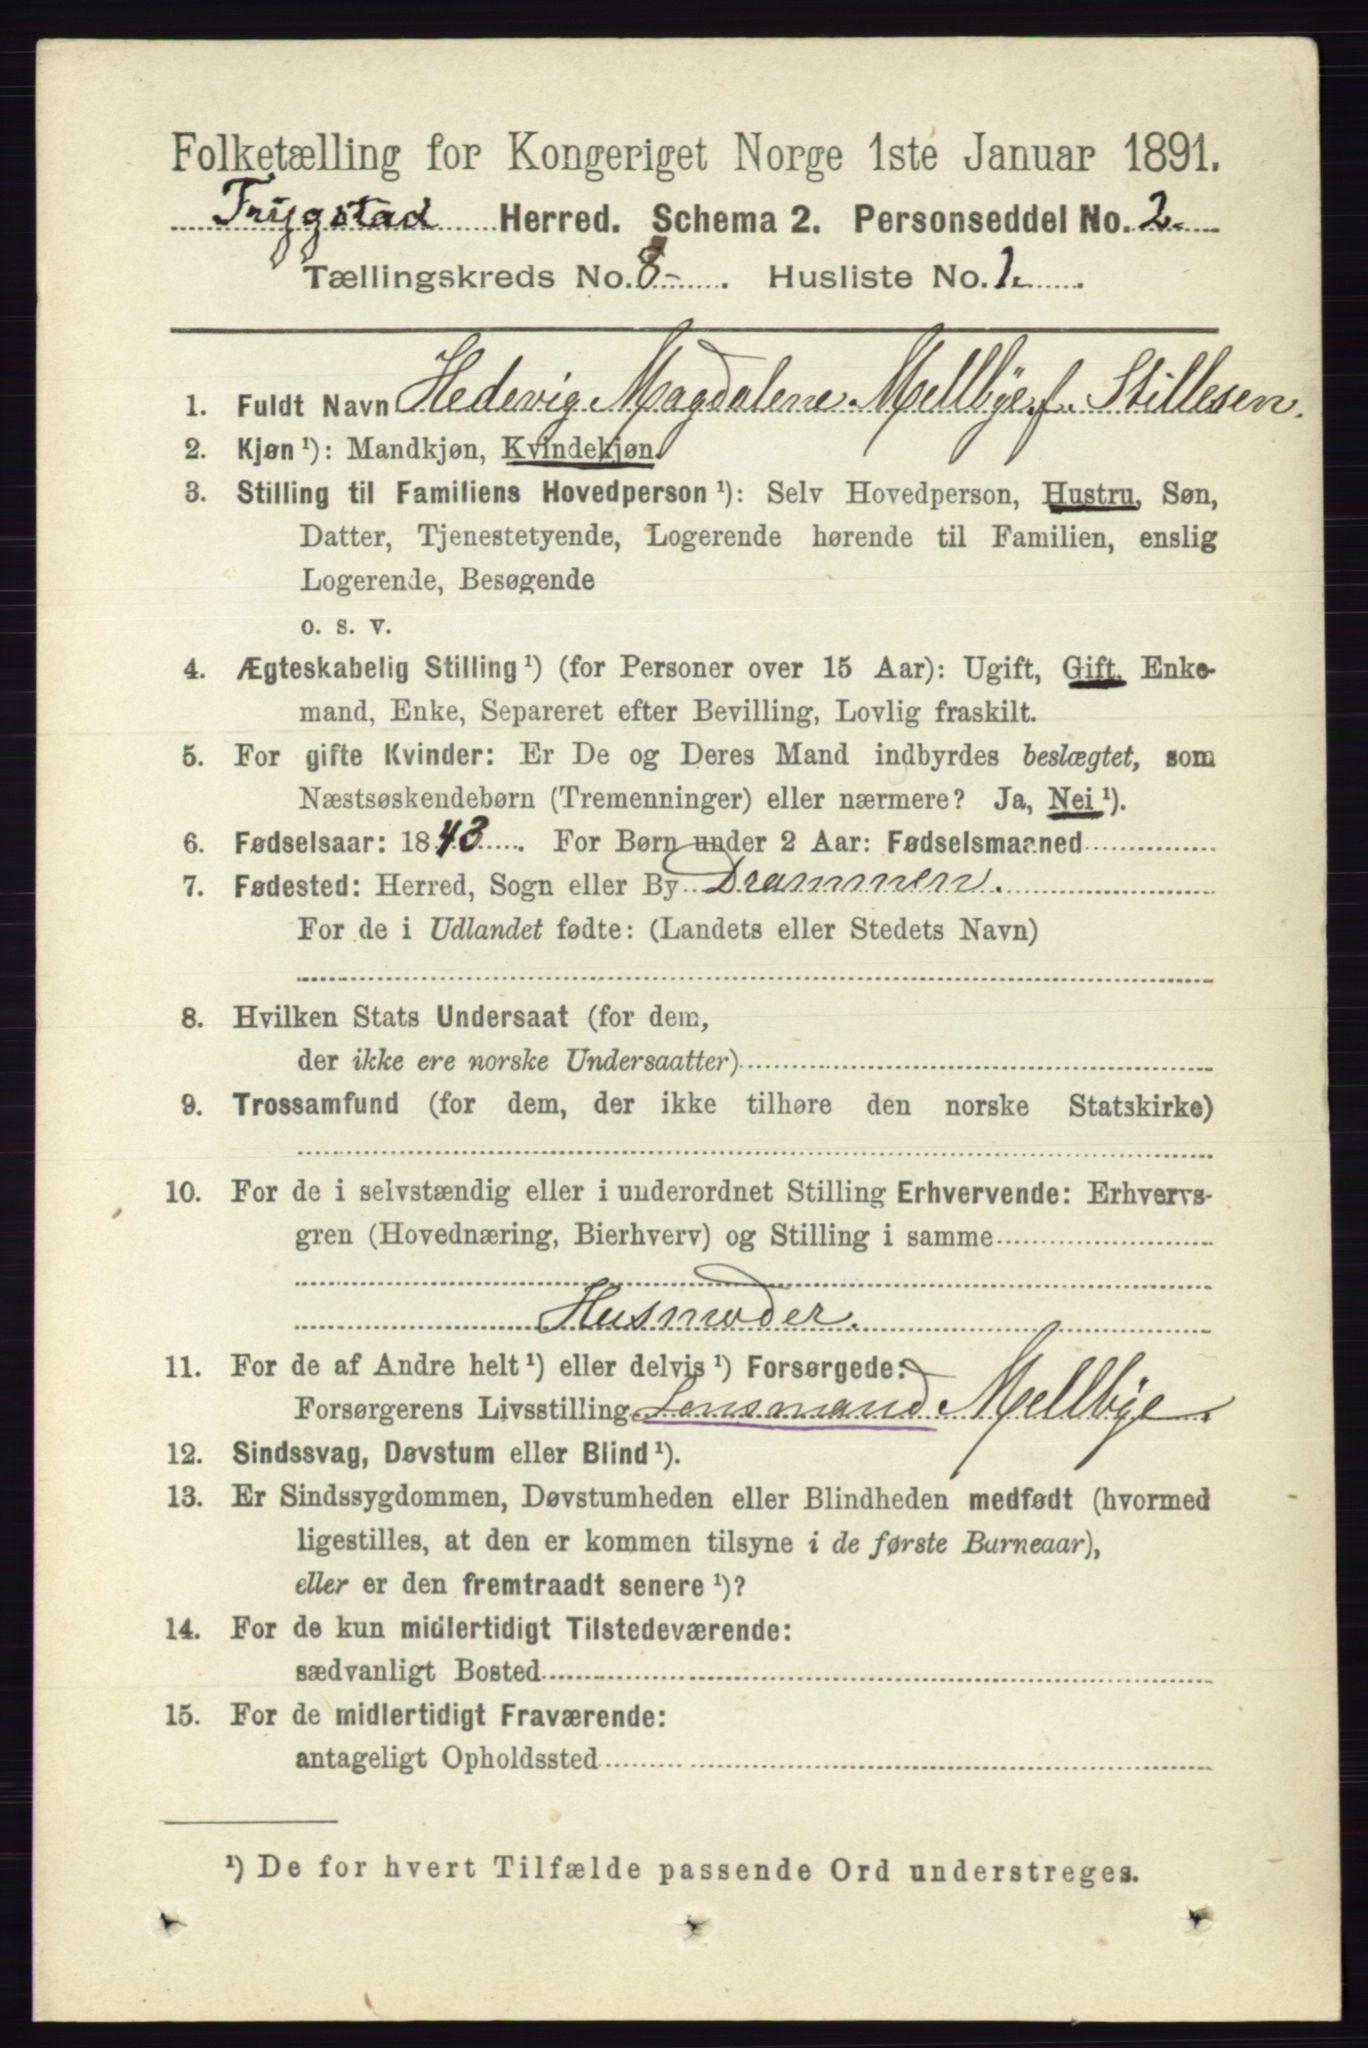 Folketælling for Kongeriget Norge 1ste Januar 1891.
Trygstad Herred. Schema 2. Personseddel No. 2.
Tællingskreds No. 8-. Husliste No. 1.
1. Fuldt Navn Hedevig Magdalene Mellbye f. Stillesen.
2. Kjøn ¹): Mandkjøn, Kvindekjøn.
3. Stilling til Familiens Hovedperson ¹): Selv Hovedperson, Hustru, Søn,
Datter, Tjenestetyende, Logerende hørende til Familien, enslig
Logerende, Besøgende
o. s. v.
4. Ægteskabelig Stilling ¹) (for Personer over 15 Aar): Ugift, Gift, Enke-
mand, Enke, Separeret efter Bevilling, Lovlig fraskilt.
5. For gifte Kvinder: Er De og Deres Mand indbyrdes beslægtet, som
Næstsøskendebørn (Tremenninger) eller nærmere? Ja, Nei ¹).
6. Fødselsaar: 1843. For Børn under 2 Aar: Fødselsmaaned
7. Fødested: Herred, Sogn eller By Drammen.
For de i Udlandet fødte: (Landets eller Stedets Navn)
8. Hvilken Stats Undersaat (for dem,
der ikke ere norske Undersaatter)
9. Trossamfund (for dem, der ikke tilhøre den norske Statskirke)
10. For de i selvstændig eller i underordnet Stilling Erhvervende: Erhvervs-
gren (Hovednæring, Bierhverv) og Stilling i samme
Husmoder.
11. For de af Andre helt ¹) eller delvis ¹) Forsørgede:
Forsørgerens Livsstilling Lensmand Mellbye.
12. Sindssvag, Døvstum eller Blind ¹).
13. Er Sindssygdommen, Døvstumheden eller Blindheden medfødt (hvormed
ligestilles, at den er kommen tilsyne i de første Barneaar),
eller er den fremtraadt senere ¹)?
14. For de kun midlertidigt Tilstedeværende:
sædvanligt Bosted
15. For de midlertidigt Fraværende:
antageligt Opholdssted
¹) De for hvert Tilfælde passende Ord understreges.